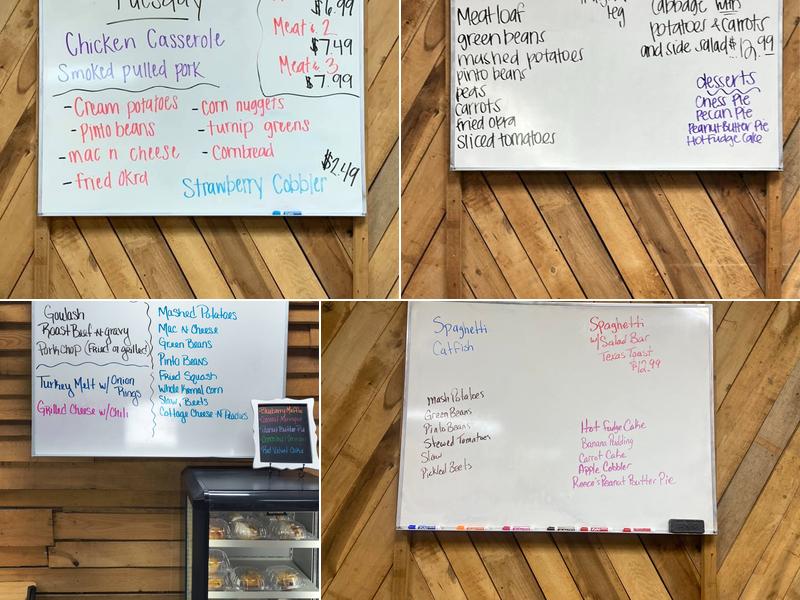 Tuesday
Chicken Casserole
Smoked pulled pork
$6.99
Meat & 2
$7.49
Meat & 3
$7.99
- Cream potatoes
- Pinto beans
- mac n cheese
- fried okra
- corn nuggets
- turnip greens
- Cornbread
$2.49
Strawberry Cobbler
Meatloaf
green beans
mashed potatoes
pinto beans
peas
carrots
fried okra
sliced tomatoes
cabbage with
potatoes & carrots
and side salad $12.99
desserts
Chess Pie
Pecan Pie
Peanut Butter Pie
Hot Fudge Cake
Goulash
Roast Beef n gravy
Pork Chop (Fried or grilled)
Turkey Melt w/ Onion
Rings
Grilled Cheese w/ Chili
Mashed Potatoes
Mac n Cheese
Green Beans
Pinto Beans
Fried Squash
Whole Kernel Corn
Slaw, Beets
Cottage Cheese n Peaches
Spaghetti
Catfish
Spaghetti
w/ Salad Bar
Texas Toast
$12.99
Mash Potatoes
Green Beans
Pinto Beans
Stewed Tomatoes
Slaw
Pickled Beets
Hot Fudge Cake
Banana Pudding
Carrot Cake
Apple Cobbler
Reece's Peanut Butter Pie